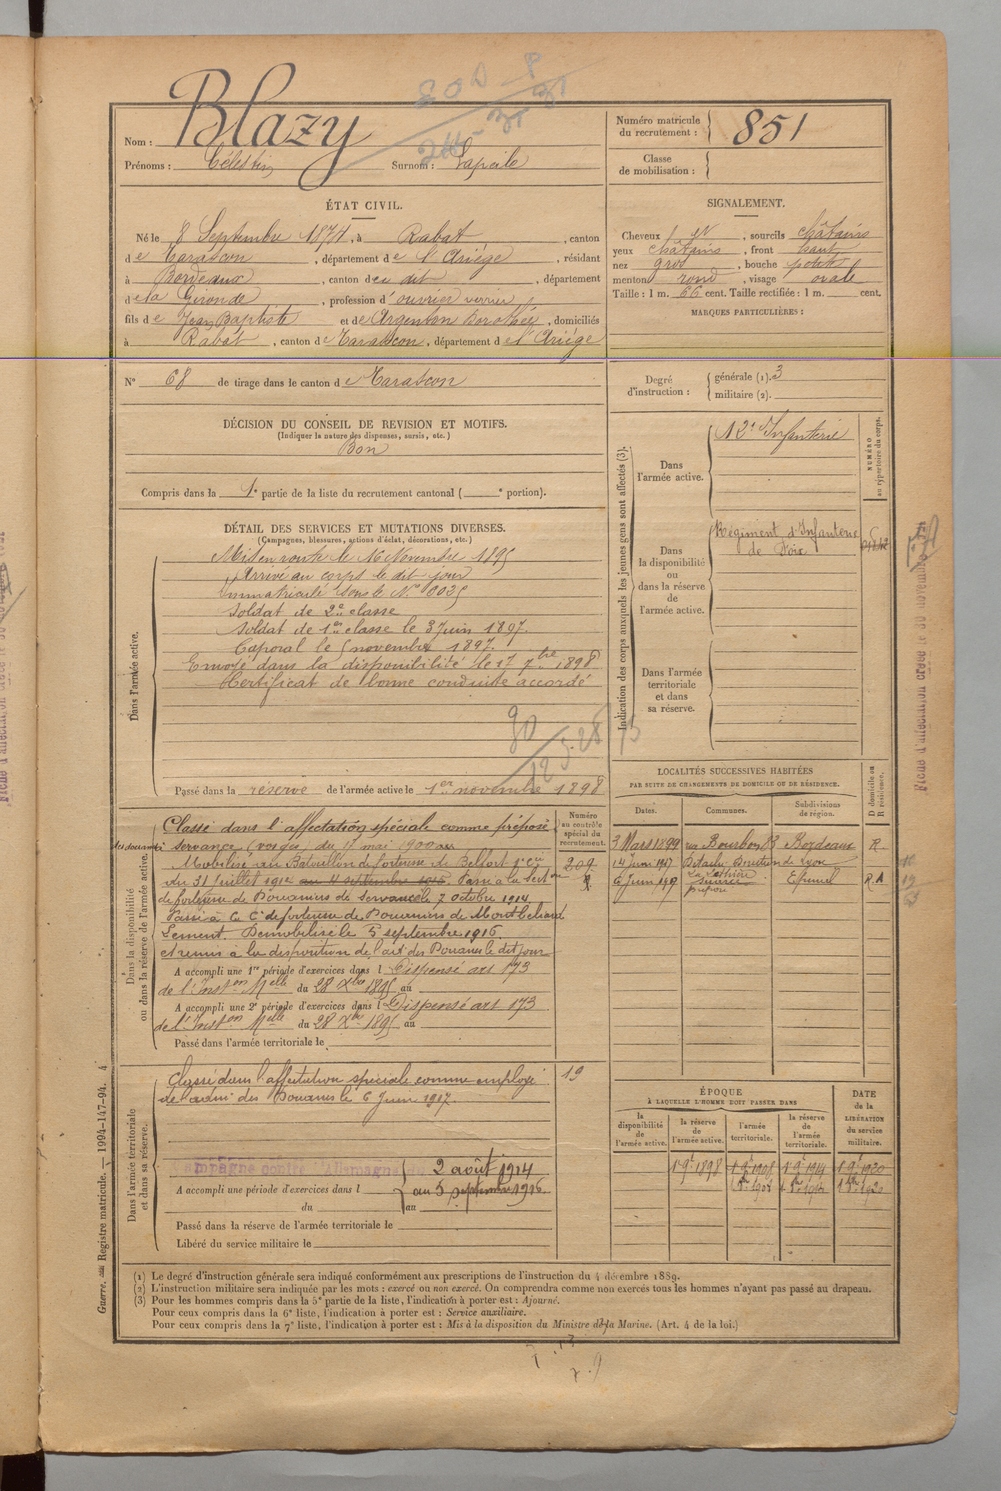 Nom : Blazy
Prénoms : Célestin Surnom :
Numéro matricule du recrutement : 851
Classe de mobilisation :
ÉTAT CIVIL.
Né le 8 Septembre 1874, à Rabat, canton
de Tarascon, département de l'Ariège, résidant
à Bordeaux, canton du dit, département
de la Gironde, profession d'ouvrier verrier,
fils de Jean Baptiste et de Argenton Dorothée, domiciliés
à Rabat, canton de Tarascon, département de l'Ariège
N° 68 de tirage dans le canton de Tarascon
SIGNALEMENT.
Cheveux, sourcils châtains
yeux châtains, front haut
nez gros, bouche petite
menton rond, visage ovale
Taille : 1 m. 66 cent. Taille rectifiée : 1 m. cent.
MARQUES PARTICULIÈRES :
Degré d'instruction : générale (1). 3
militaire (2).
DÉCISION DU CONSEIL DE REVISION ET MOTIFS.
(Indiquer la nature des dispenses, sursis, etc.)
Bon
Compris dans la 1e partie de la liste du recrutement cantonal ( e portion).
DÉTAIL DES SERVICES ET MUTATIONS DIVERSES.
(Campagnes, blessures, actions d'éclat, décorations, etc.)
Dans l'armée active.
Mis en route le 16 Novembre 1895
Arrivé au corps le dit jour
Immatriculé sous le N°
Soldat de 2e classe
Soldat de 1re classe le 3 Juin 1897.
Caporal le 5 novembre 1897.
Envoyé dans la disponibilité le 17 7bre 1898
Certificat de bonne conduite accordé
Passé dans la réserve de l'armée active le 1er novembre 1898
Indication des corps auxquels les jeunes gens sont affectés (3).
NUMÉRO au répertoire du corps.
Dans l'armée active.
12e Infanterie
Dans la disponibilité ou dans la réserve de l'armée active.
Régiment d'Infanterie
de Foix
Dans l'armée territoriale et dans sa réserve.
Dans la disponibilité ou dans la réserve de l'armée active.
Numéro au contrôle spécial du recrutement.
Classé dans l'affectation spéciale comme préposé
des douanes à Servance (Vosges) du 15 mai 1900
Mobilisé au Bataillon de forteresse de Belfort
du 31 juillet 1914 Passé à la Sect on
de forteresse de Douaniers de Servance le 7 octobre 1914
Passé à la Cie de forteresse de Douaniers de Montbéliard
Démobilisé le 5 septembre 1916
et remis à la disposition de l'adt des Douanes le dit jour
209
A accompli une 1re période d'exercices dans l Dispensé art 173
de l'Inston Melle du 28 Xbre 1895 au
A accompli une 2e période d'exercices dans l Dispensé art 173
de l'Inston Melle du 28 Xbre 1895 au
Passé dans l'armée territoriale le
Dans l'armée territoriale et dans sa réserve.
Classé dans l'affectation spéciale comme employé
de l'adm des Douanes le 6 Juin 1917
19
Campagne contre l'Allemagne du 2 août 1914
A accompli une période d'exercices dans l au 5 septembre 1916
du au
Passé dans la réserve de l'armée territoriale le
Libéré du service militaire le
LOCALITÉS SUCCESSIVES HABITÉES
PAR SUITE DE CHANGEMENTS DE DOMICILE OU DE RÉSIDENCE.
Dates. Communes. Subdivisions de région. D domicile ou R résidence.
3 Mars 1899 rue Bourbon 83 Bordeaux R
14 Juin 1917 Lyon
6 Juin 1919 Epinal R A
ÉPOQUE
À LAQUELLE L'HOMME DOIT PASSER DANS
DATE de la LIBÉRATION du service militaire.
la disponibilité de l'armée active. la réserve de l'armée active. l'armée territoriale. la réserve de l'armée territoriale.
1 9e 1898 1 9e 1908 1 9e 1914 1 9e 1920
(1) Le degré d'instruction générale sera indiqué conformément aux prescriptions de l'instruction du 4 décembre 1889.
(2) L'instruction militaire sera indiquée par les mots : exercé ou non exercé. On comprendra comme non exercés tous les hommes n'ayant pas passé au drapeau.
(3) Pour les hommes compris dans la 5e partie de la liste, l'indication à porter est : Ajourné.
Pour ceux compris dans la 6e liste, l'indication à porter est : Service auxiliaire.
Pour ceux compris dans la 7e liste, l'indication à porter est : Mis à la disposition du Ministre de la Marine. (Art. 4 de la loi.)
Guerre. Registre matricule. — 1994-147-94. 4